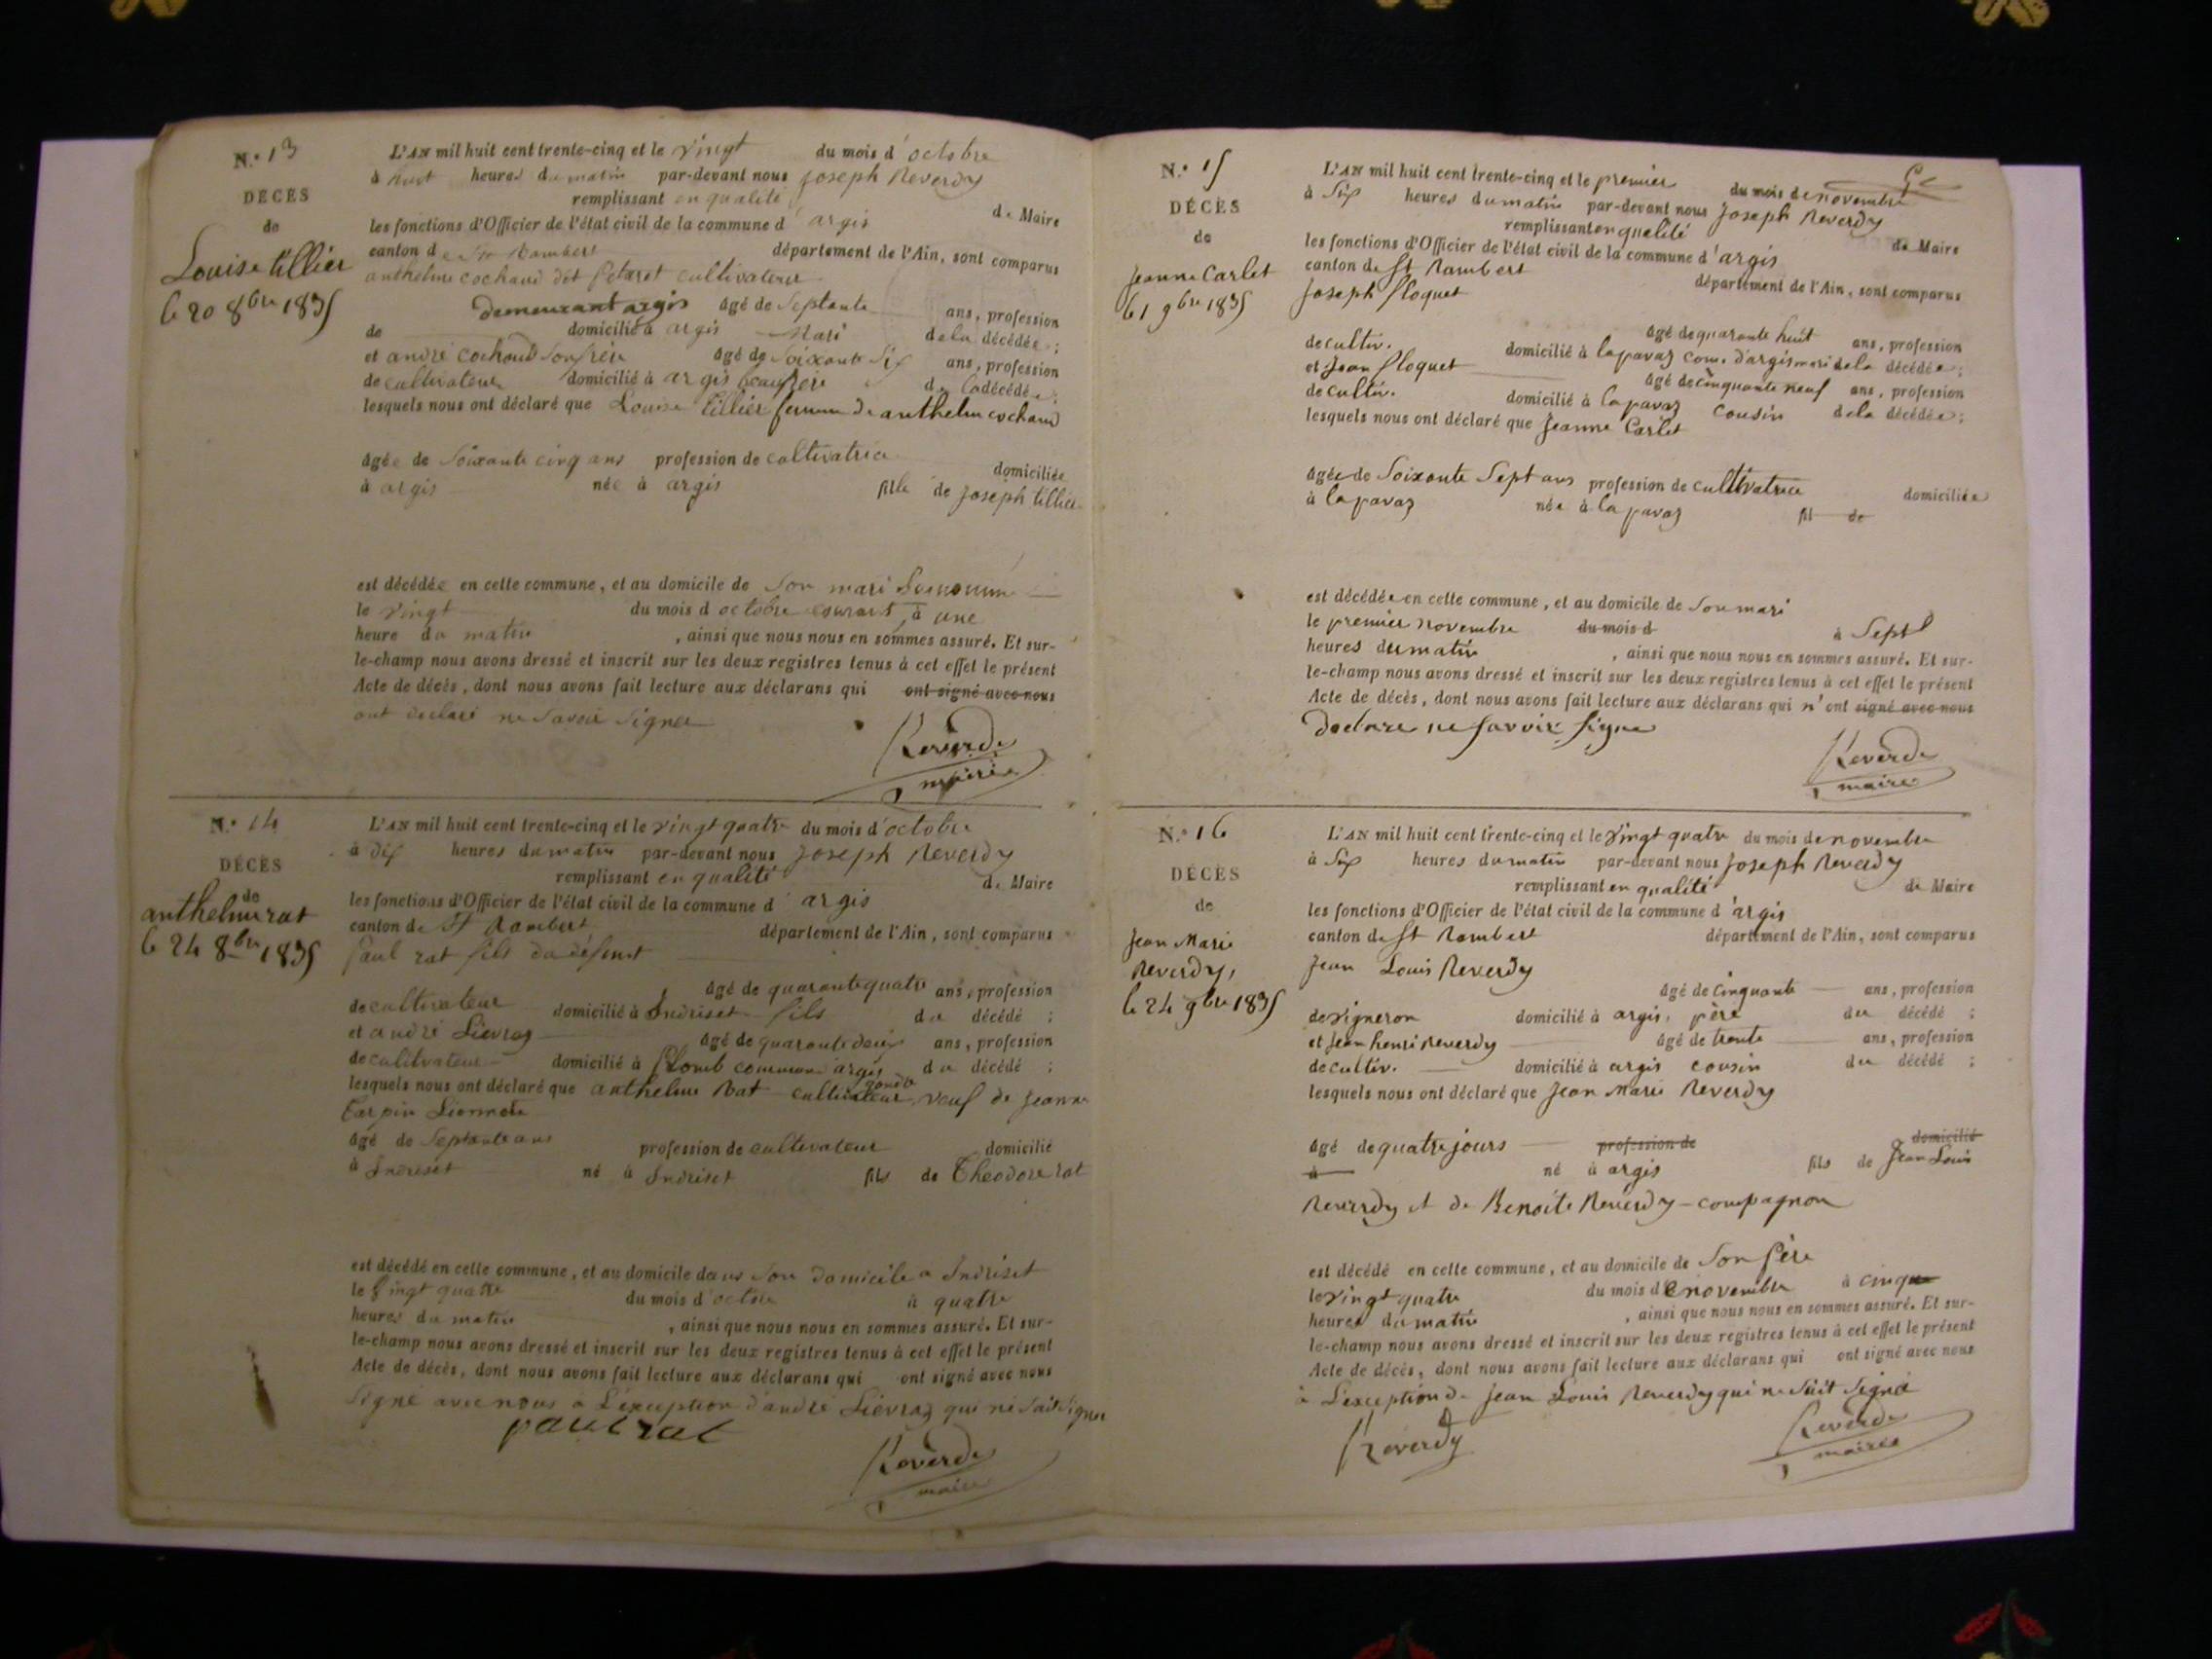 N.° 13
DÉCÈS
de
Louise tillier
le 20 8bre 1835
L'AN mil huit cent trente-cinq et le vingt du mois d'octobre
à huit heures du matin par-devant nous joseph Reverdy
remplissant en qualité de Maire
les fonctions d'Officier de l'état civil de la commune d'argis
canton de St Rambert département de l'Ain, sont comparus
anthelme cochaud dit cultivateur
demeurant argis âgé de Septante ans, profession
de domicilié à argis Mari de la décédée ;
et andré cochaud son frère âgé de soixante six ans, profession
de cultivateur domicilié à argis beaufrère de la décédée ;
lesquels nous ont déclaré que Louise tillier femme de anthelme cochaud
âgée de Soixante cinq ans profession de cultivatrice domiciliée
à argis née à argis fille de joseph tillier
est décédée en cette commune, et au domicile de Son mari
le vingt du mois d octobre courant, à une
heure du matin , ainsi que nous nous en sommes assuré. Et sur-
le-champ nous avons dressé et inscrit sur les deux registres tenus à cet effet le présent
Acte de décès, dont nous avons fait lecture aux déclarans qui ont signé avec nous
ont declaré ne Savoir Signer
Reverdy
maire
N.° 14
DÉCÈS
de
anthelme rat
le 24 8bre 1835
L'AN mil huit cent trente-cinq et le vingt quatre du mois d'octobre
à dix heures du matin par-devant nous joseph Reverdy
remplissant en qualité de Maire
les fonctions d'Officier de l'état civil de la commune d'argis
canton de St Rambert département de l'Ain, sont comparus
paul rat fils du défunt
âgé de quarante quatre ans, profession
de cultivateur domicilié à Indriset fils du décédé ;
et andré Lievraz âgé de quarante deux ans, profession
de cultivateur domicilié à plomb commune argis du décédé ;
lesquels nous ont déclaré que anthelme Rat cultivateur, veuf de jeanne
âgé de Septante ans profession de cultivateur domicilié
à Indriset né à Indriset fils de Theodore rat
est décédé en cette commune, et au domicile dans Son domicile a Indriset
le vingt quatre du mois d'octobre à quatre
heures du matin , ainsi que nous nous en sommes assuré. Et sur-
le-champ nous avons dressé et inscrit sur les deux registres tenus à cet effet le présent
Acte de décès, dont nous avons fait lecture aux déclarans qui ont signé avec nous
Signé avec nous a L'exception d'andré Lievraz qui ne Sait Signer
paul rat
Reverdy
maire
N.° 15
DÉCÈS
de
jeanne Carlet
le 1 9bre 1835
L'AN mil huit cent trente-cinq et le premier du mois de novembre
à Six heures du matin par-devant nous joseph Reverdy
remplissant en qualité de Maire
les fonctions d'Officier de l'état civil de la commune d'argis
canton de St Rambert département de l'Ain, sont comparus
joseph floquet
âgé de quarante huit ans, profession
de cultiv. domicilié à lapavaz com. d'argis mari de la décédée ;
et jean floquet âgé de cinquante neuf ans, profession
de cultiv. domicilié à lapavaz cousin de la décédée ;
lesquels nous ont déclaré que jeanne Carlet
âgée de Soixante Sept ans profession de cultivatrice domiciliée
à lapavaz née à lapavaz fil de
est décédée en cette commune, et au domicile de Son mari
le premier novembre du mois d à Sept
heures du matin , ainsi que nous nous en sommes assuré. Et sur-
le-champ nous avons dressé et inscrit sur les deux registres tenus à cet effet le présent
Acte de décès, dont nous avons fait lecture aux déclarans qui n'ont signé avec nous
declare ne Savoir Signe
Reverdy
maire
N.° 16
DÉCÈS
de
jean Marie
Reverdy,
le 24 9bre 1835
L'AN mil huit cent trente-cinq et le vingt quatre du mois de novembre
à Six heures du matin par-devant nous joseph Reverdy
remplissant en qualité de Maire
les fonctions d'Officier de l'état civil de la commune d'argis
canton de St Rambert département de l'Ain, sont comparus
jean Louis Reverdy
âgé de cinquante ans, profession
de vigneron domicilié à argis, père du décédé ;
et jean henri Reverdy âgé de trente ans, profession
de cultiv. domicilié à argis cousin du décédé ;
lesquels nous ont déclaré que jean Marie Reverdy
âgé de quatre jours profession de domicilié
à né à argis fils de jean Louis
Reverdy et de Benoite Reverdy-compagnon
est décédé en cette commune, et au domicile de Son père
le vingt quatre du mois de novembre à cinq
heures du matin , ainsi que nous nous en sommes assuré. Et sur-
le-champ nous avons dressé et inscrit sur les deux registres tenus à cet effet le présent
Acte de décès, dont nous avons fait lecture aux déclarans qui ont signé avec nous
à L'exception de jean Louis Reverdy qui ne Sait Signé
Reverdy
Reverdy
maire